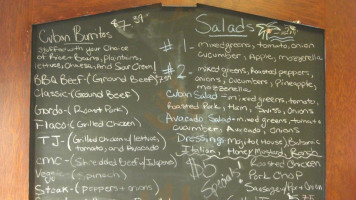 Cuban Burritos $7.39
Stuffed with your Choice
of Rice + Beans, Plantains,
lettuce, Cheese, And Sour Cream!
BBQ Beef-(Ground Beef)
Classic-(Ground Beef)
Gordo-(Roast Pork)
Flaco-(Grilled Chicken)
TJ-(Grilled Chicken, lettuce,
tomato, and Avocado)
CMC-(Shredded Beef w/Jalapeno)
(spinach)
Steak-(peppers + onions)
Salads
#1- mixed greens, tomato, onion
cucumber, Apple, mozzerella
#2- mixed greens, Roasted peppers,
onions, cucumbers, Pineapple,
mozzerella
Cuban Salad= mixed greens, tomato,
Roasted Pork, Ham, Swiss, Onions
Avocado Salad= mixed greens, tomato
cucumber, Avocado, Onions
Dressings- Mojito (House) Balsamic
Italian, Honey Mustard, Ranch
$5 Specials!
Roasted Chicken
Pork Chop
Sausage w/ Pep + Onion